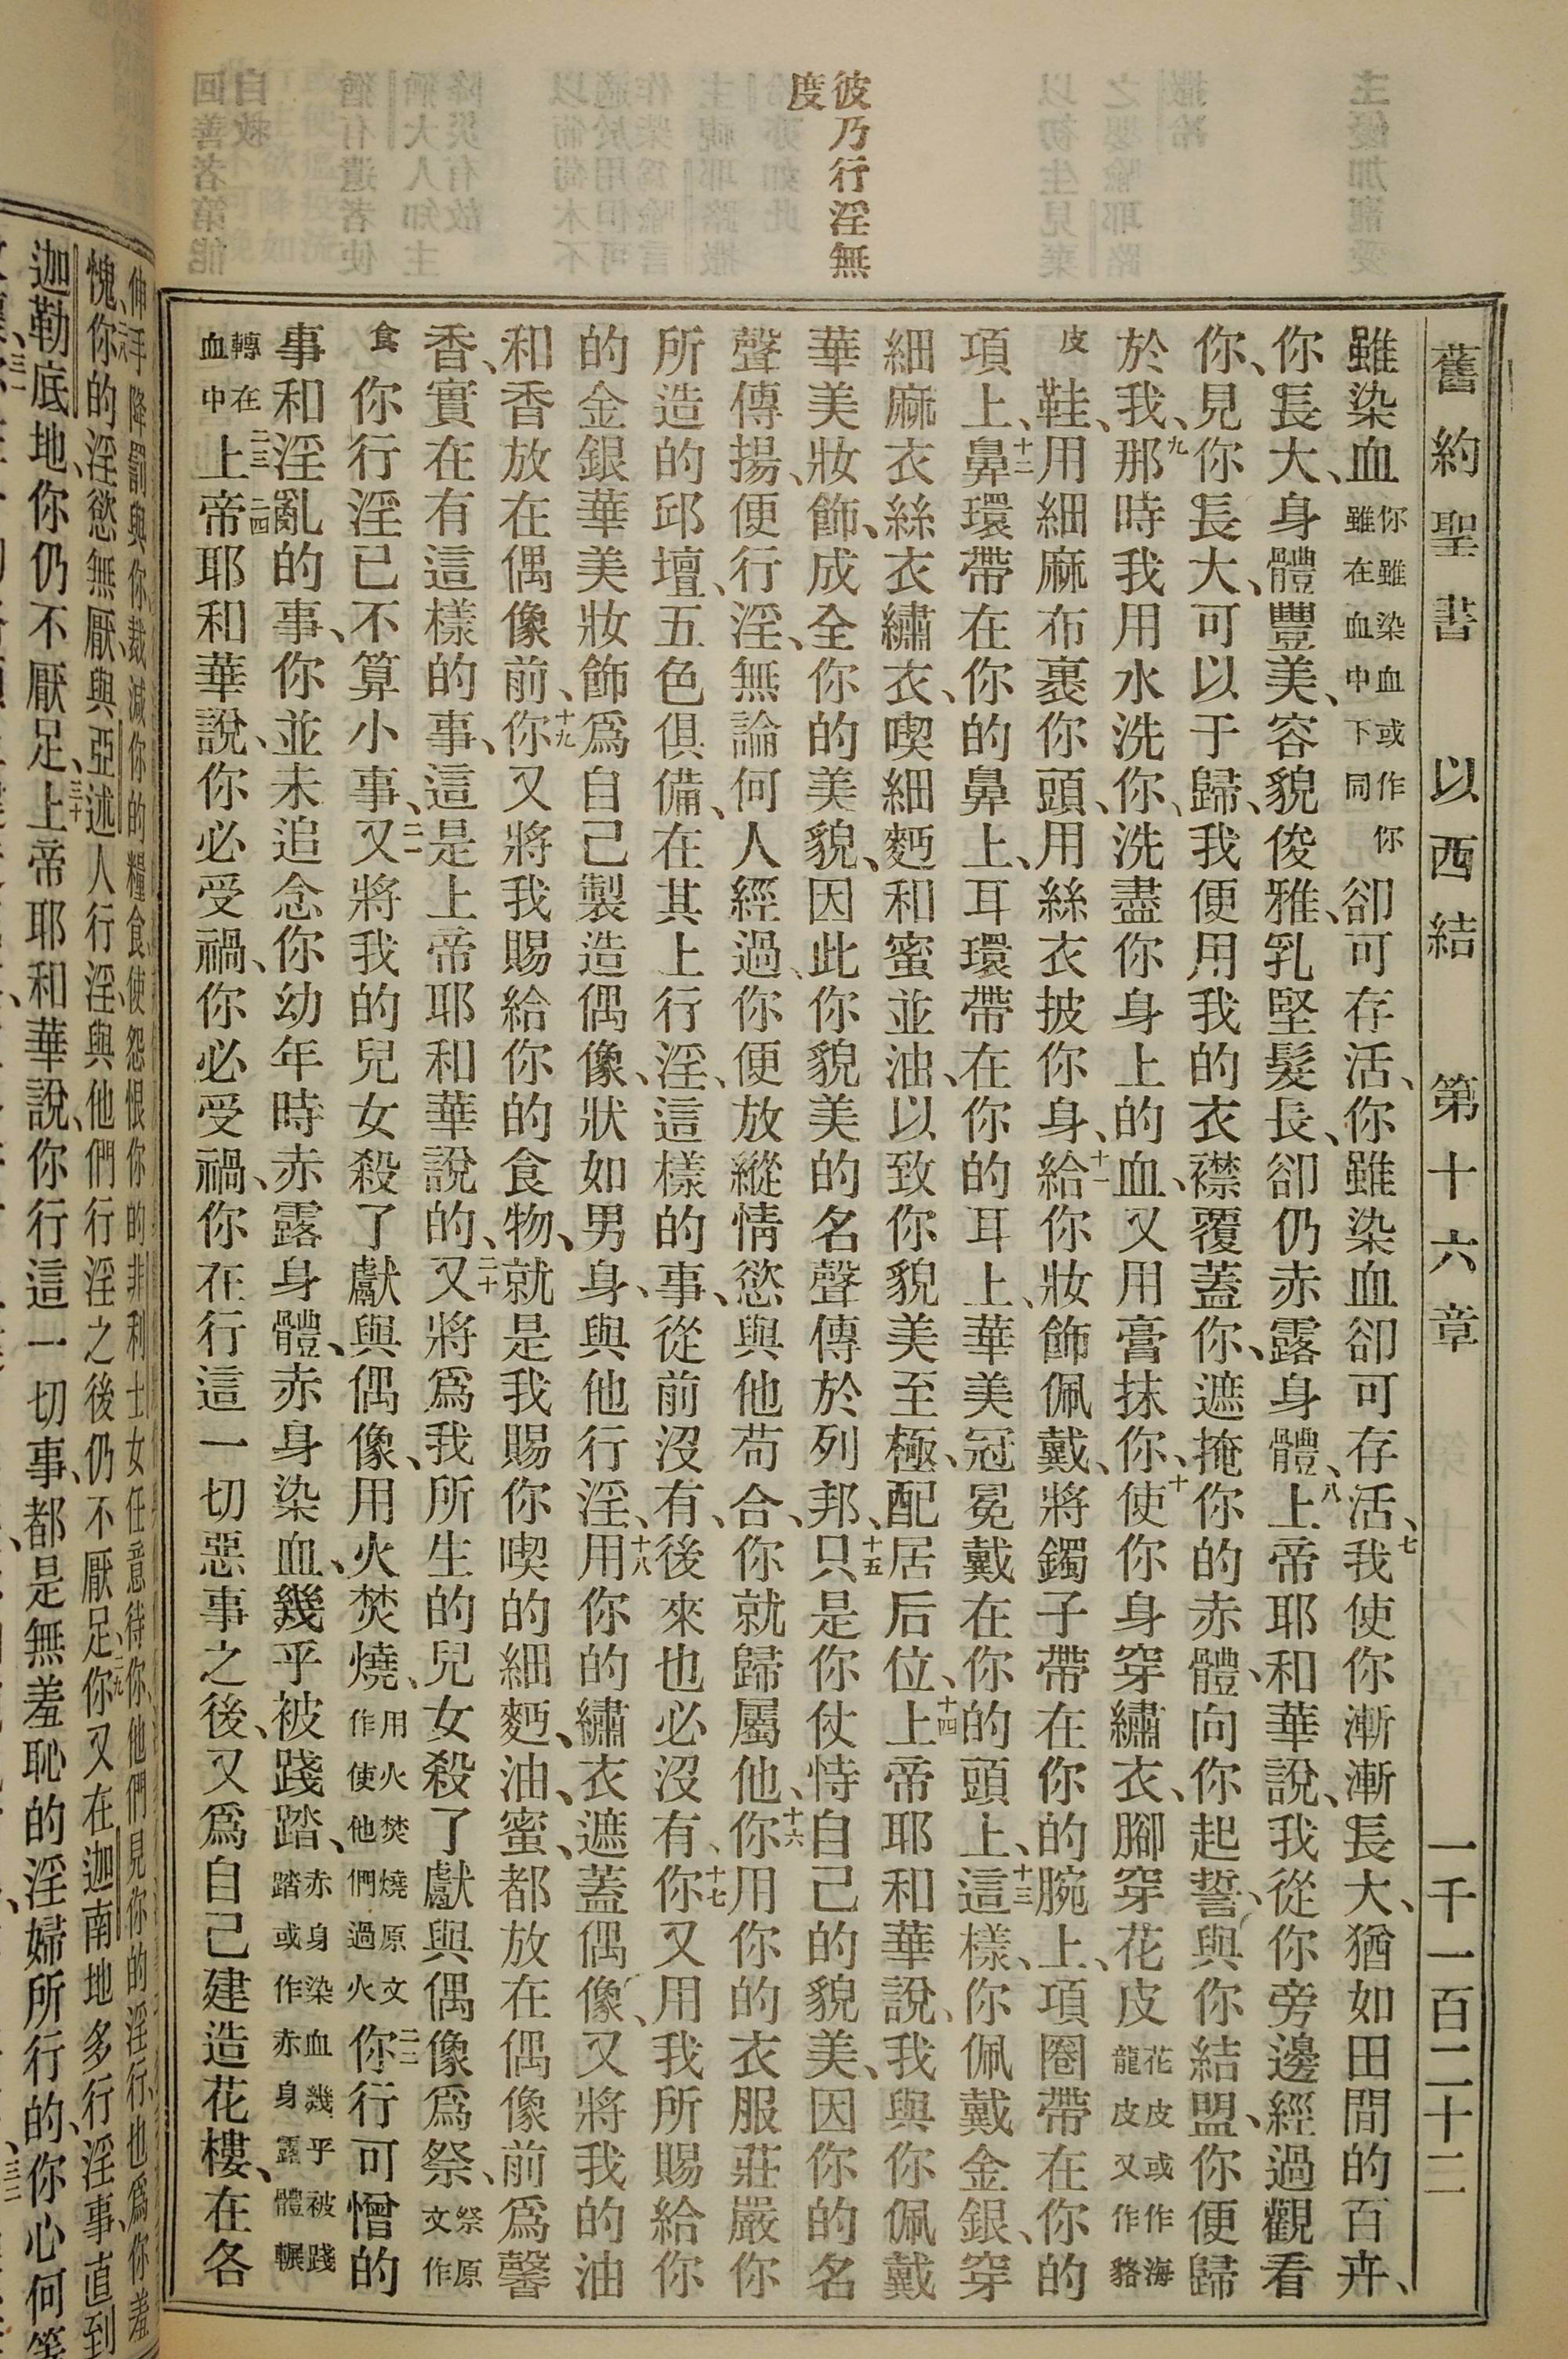 彼乃行淫無
度
舊約聖書 以西結 第十六章 一千一百二十二
雖染血你雖染血或作你雖在血中下同卻可存活、你雖染血卻可存活、七我使你漸漸長大、猶如田間的百卉、
你長大、身體豐美、容貌俊雅、乳堅髮長、卻仍赤露身體、八上帝耶和華說、我從你旁邊經過觀看
你、見你長大、可以于歸、我便用我的衣襟覆蓋你、遮掩你的赤體、向你起誓、與你結盟、你便歸
於我、九那時我用水洗你、洗盡你身上的血、又用膏抹你、十使你身穿繡衣、腳穿花皮花皮或作海龍皮又作貉
皮鞋、用細麻布裹你頭、用絲衣披你身、十一給你妝飾佩戴、將鐲子帶在你的腕上、項圈帶在你的
項上、十二鼻環帶在你的鼻上、耳環帶在你的耳上、華美冠冕戴在你的頭上、十三這樣、你佩戴金銀、穿
細麻衣、絲衣、繡衣、喫細麪和蜜並油、以致你貌美至極、配居后位、十四上帝耶和華說、我與你佩戴
華美妝飾、成全你的美貌、因此你貌美的名聲傳於列邦、十五只是你仗恃自己的貌美、因你的名
聲傳揚、便行淫、無論何人經過、你便放縱情慾與他苟合、你就歸屬他、十六你用你的衣服莊嚴你
所造的邱壇、五色俱備、在其上行淫、這樣的事、從前沒有、後來也必沒有、十七你又用我所賜給你
的金銀華美妝飾爲自己製造偶像、狀如男身、與他行淫、十八用你的繡衣遮蓋偶像、又將我的油
和香放在偶像前、十九你又將我賜給你的食物、就是我賜你喫的細麪、油、蜜、都放在偶像前爲馨
香、實在有這樣的事、這是上帝耶和華說的、二十又將爲我所生的兒女殺了獻與偶像爲祭、祭原文作
食你行淫已不算小事、二一又將我的兒女殺了獻與偶像、用火焚燒、用火焚燒原文作使他們過火二二你行可憎的
事和淫亂的事、你並未追念你幼年時赤露身體、赤身染血、幾乎被踐踏、赤身染血幾乎被踐踏或作赤身露體輾
轉在血中二三上二四帝耶和華說、你必受禍、你必受禍、你在行這一切惡事之後、又爲自己建造花樓、在各
伸手降罰與你、裁減你的糧食、使怨恨你的非利士女任意待你、他們見你的淫行、也爲你羞
愧、二八你的淫慾無厭、與亞述人行淫、與他們行淫之後仍不厭足、二九你又在迦南地多行淫事、直到
迦勒底地、你仍不厭足、三十上帝耶和華說、你行這一切事、都是無羞恥的淫婦所行的、你心何等